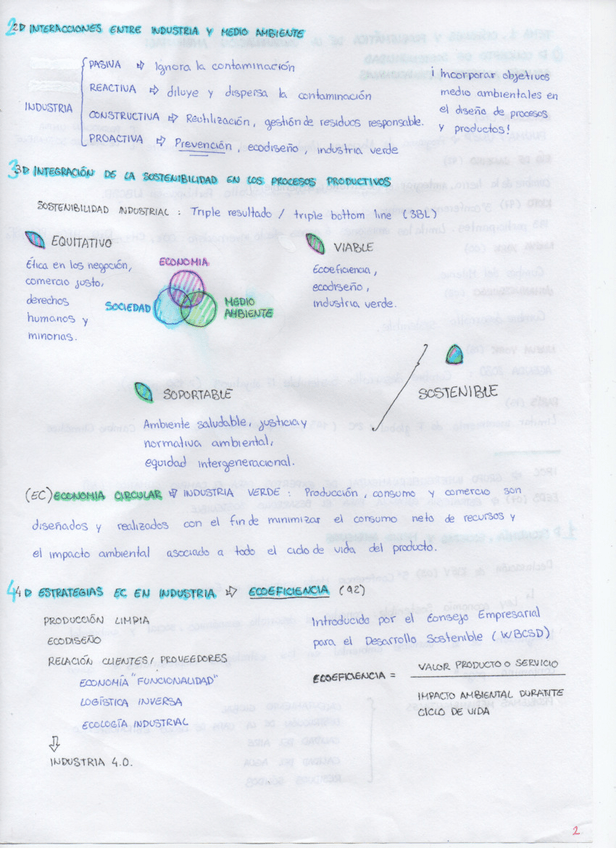 2D INTERACCIONES ENTRE INDUSTRIA Y MEDIO AMBIENTE
INDUSTRIA
PASIVA ⇨ Ignora la contaminación
REACTIVA ⇨ diluye y dispersa la contaminación
CONSTRUCTIVA ⇨ Reutilización, gestión de residuos responsable.
PROACTIVA ⇨ Prevención, ecodiseño, industria verde
¡ Incorporar objetivos
medio ambientales en
el diseño de procesos
y productos!
3D INTEGRACIÓN DE LA SOSTENIBILIDAD EN LOS PROCESOS PRODUCTIVOS
SOSTENIBILIDAD INDUSTRIAL : Triple resultado / triple bottom line (3BL)
EQUITATIVO
Ética en los negoción,
comercio justo,
derechos
humanos y
minorias.
ECONOMIA
SOCIEDAD
MEDIO
AMBIENTE
VIABLE
Ecoeficiencia,
ecodiseño,
industria verde.
SOPORTABLE
Ambiente saludable, justicia y
normativa ambiental,
equidad intergeneracional.
SOSTENIBLE
(EC) ECONOMIA CIRCULAR ⇨ INDUSTRIA VERDE : Producción, consumo y comercio son
diseñados y realizados con el fin de minimizar el consumo neto de recursos y
el impacto ambiental asociado a todo el ciclo de vida del producto.
4D ESTRATEGIAS EC EN INDUSTRIA ⇨ ECOEFICIENCIA (92)
PRODUCCIÓN LIMPIA
ECODISEÑO
RELACIÓN CLIENTES / PROVEEDORES
ECONOMÍA "FUNCIONALIDAD"
LOGÍSTICA INVERSA
ECOLOGÍA INDUSTRIAL
INDUSTRIA 4.0.
Introducido por el Consejo Empresarial
para el Desarrollo Sostenible (WBCSD)
ECOEFICIENCIA = VALOR PRODUCTO O SERVICIO
IMPACTO AMBIENTAL DURANTE
CICLO DE VIDA
2